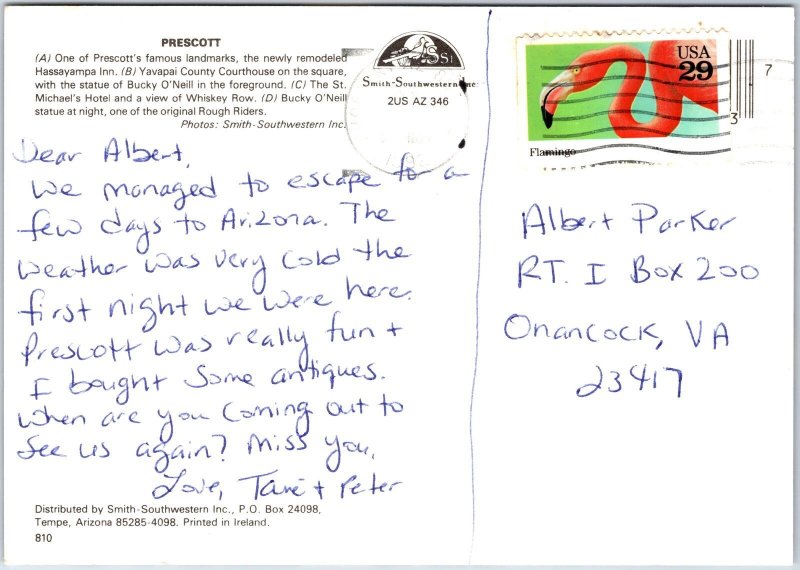 PRESCOTT
(A) One of Prescott's famous landmarks, the newly remodeled
Hassayampa Inn. (B) Yavapai County Courthouse on the square,
with the statue of Bucky O'Neill in the foreground. (C) The St.
Michael's Hotel and a view of Whiskey Row. (D) Bucky O'Neill
statue at night, one of the original Rough Riders.
Photos: Smith-Southwestern Inc.
SSI
Smith-Southwestern Inc
2US AZ 346
USA
29
Flamingo
3
7
Dear Albert,
We managed to escape for a
few days to Arizona. The
weather was very cold the
first night we were here.
Prescott was really fun +
I bought some antiques.
When are you coming out to
see us again? Miss you,
Love, Tani + Peter
Albert Parker
RT. I Box 200
Onancock, VA
23417
Distributed by Smith-Southwestern Inc., P.O. Box 24098,
Tempe, Arizona 85285-4098. Printed in Ireland.
810